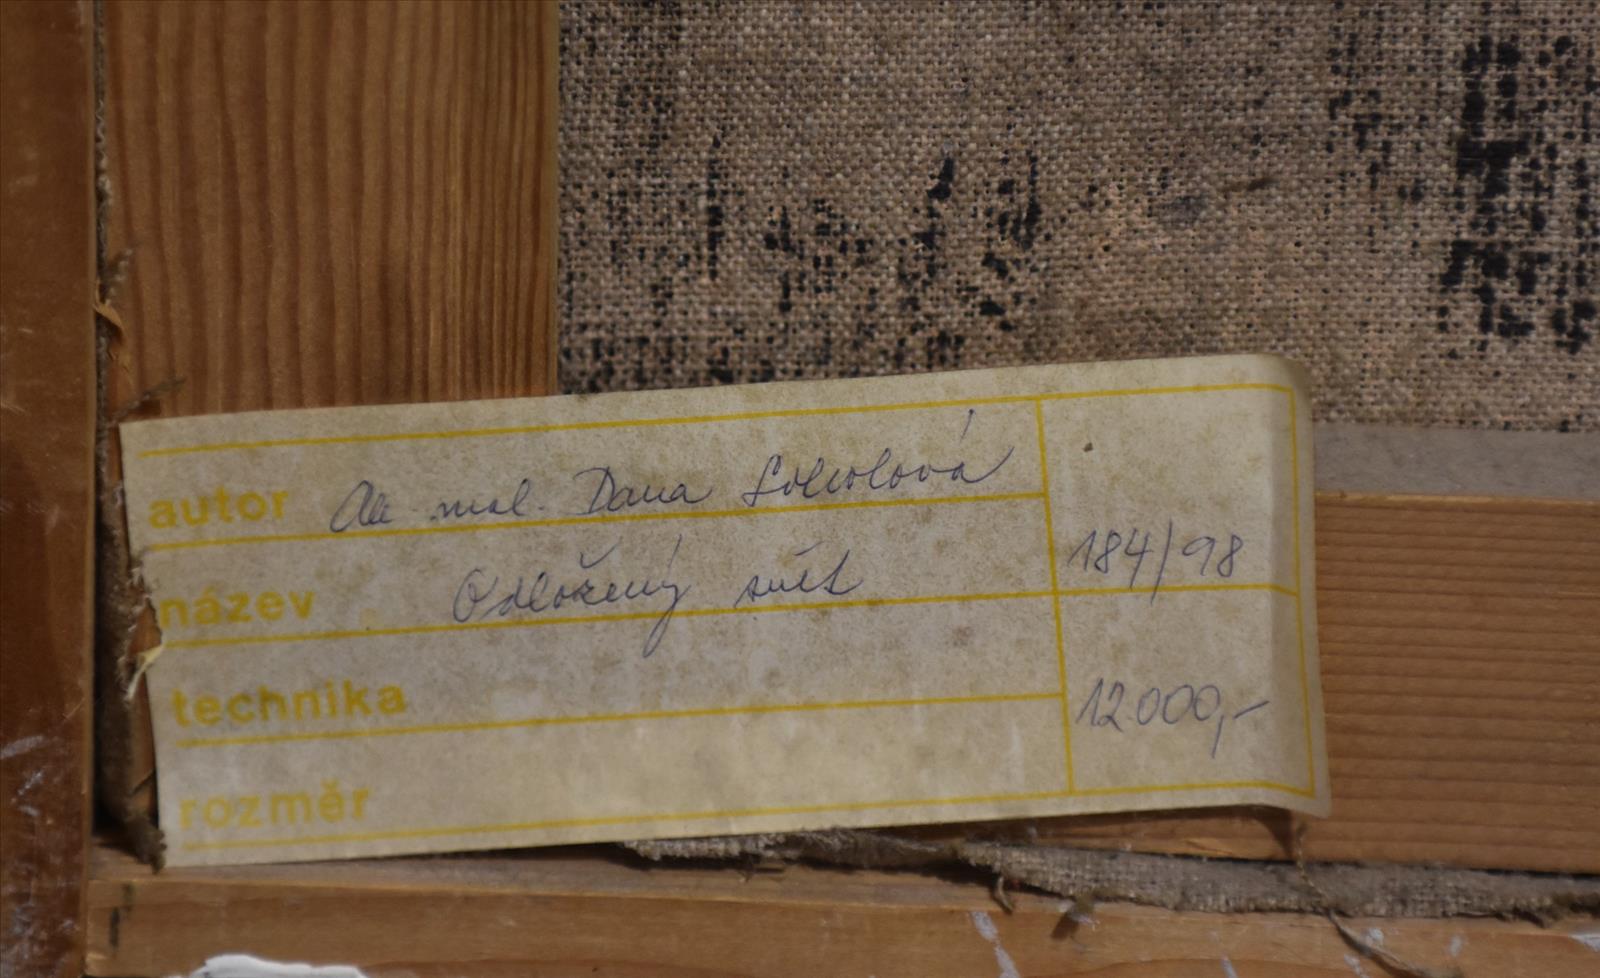 autor Ak. mal. Dana Sokolová
název Odložený svět 184/98
technika 12.000,-
rozměr